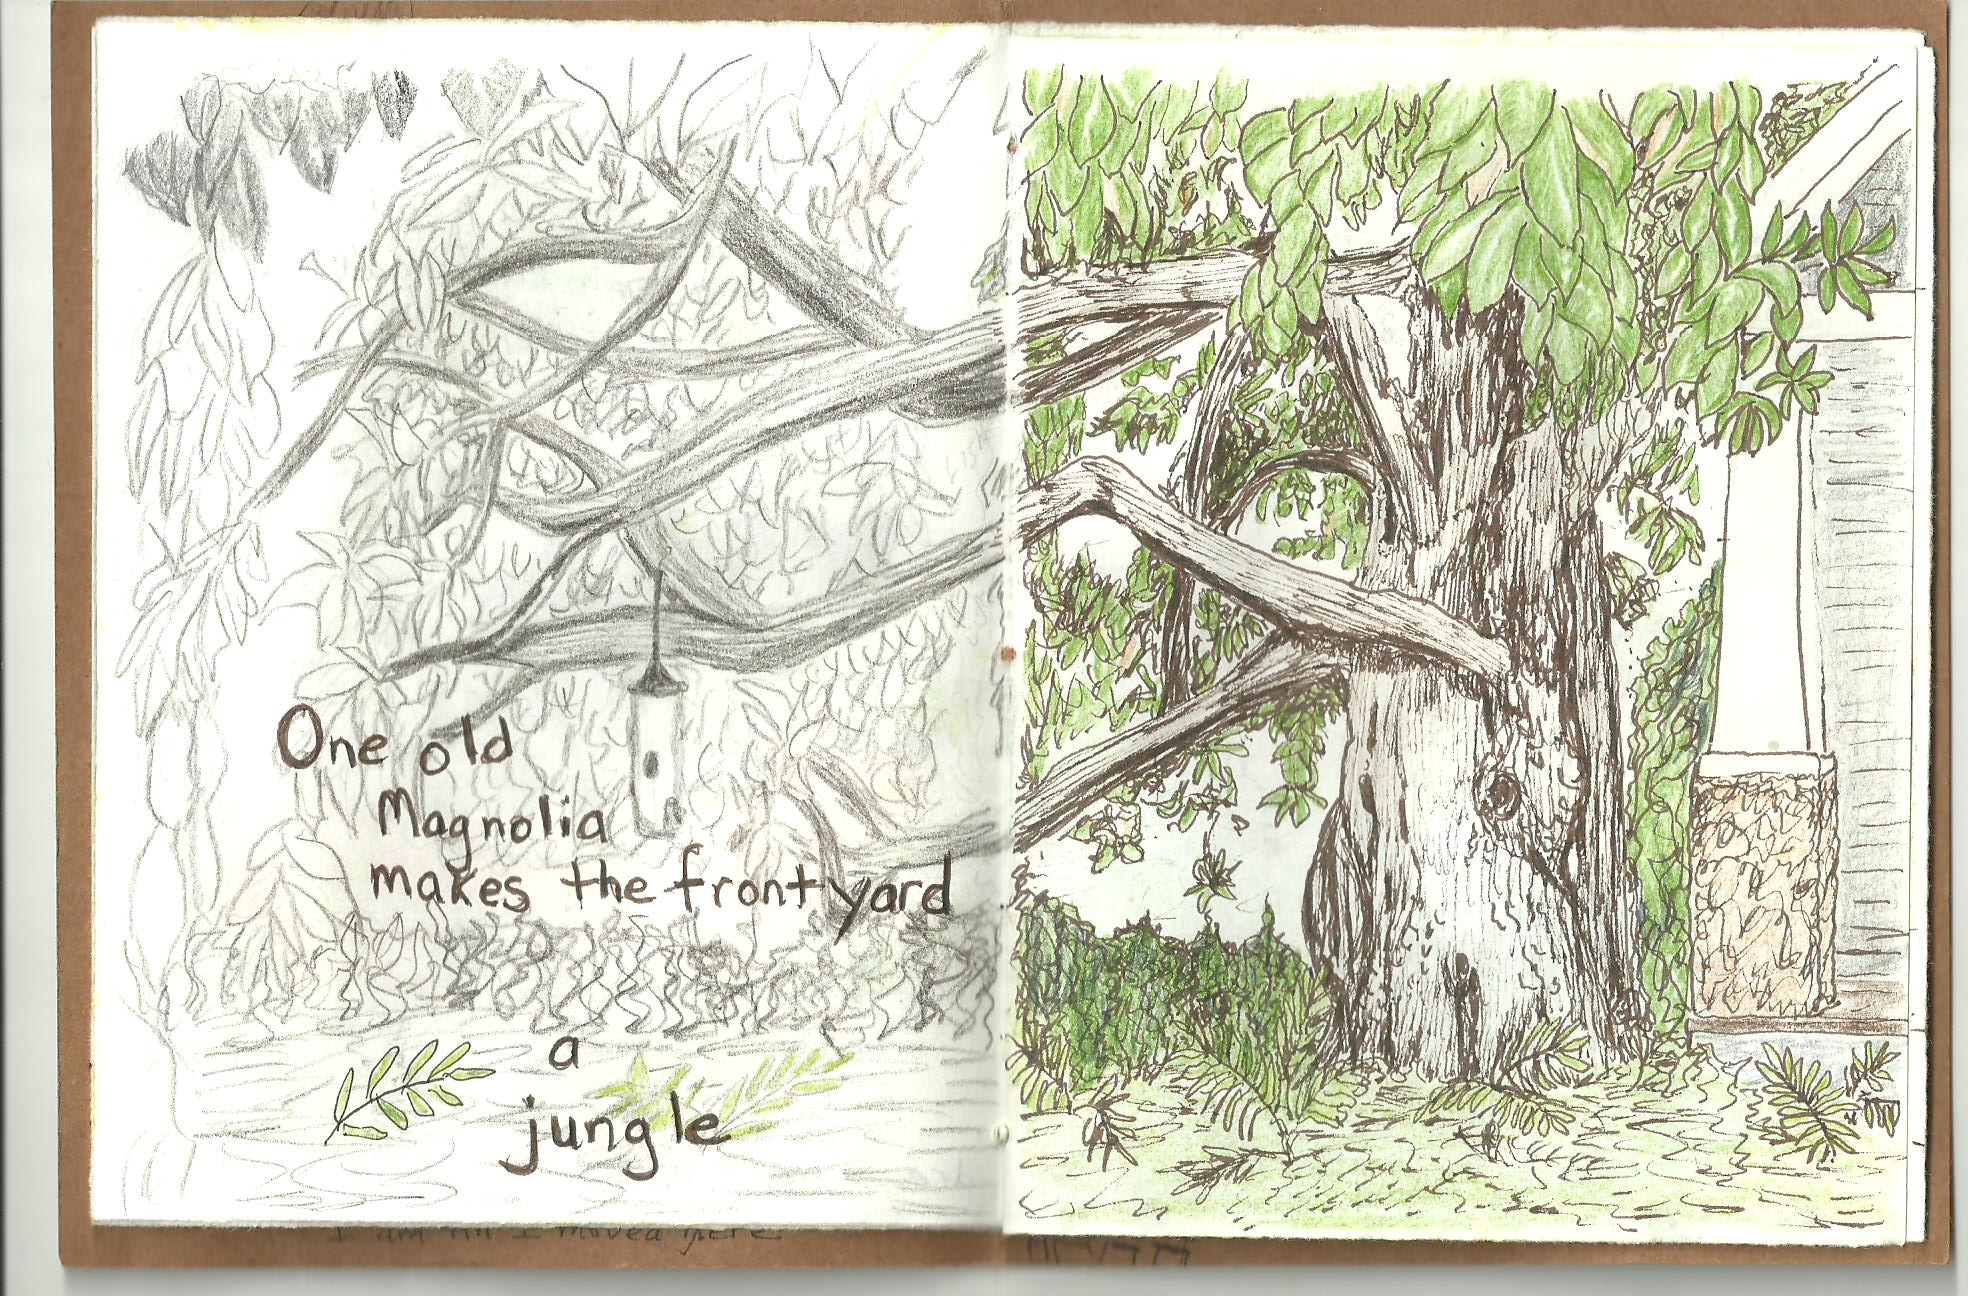 One old
Magnolia
makes the front yard
a
jungle
I am   I moved here